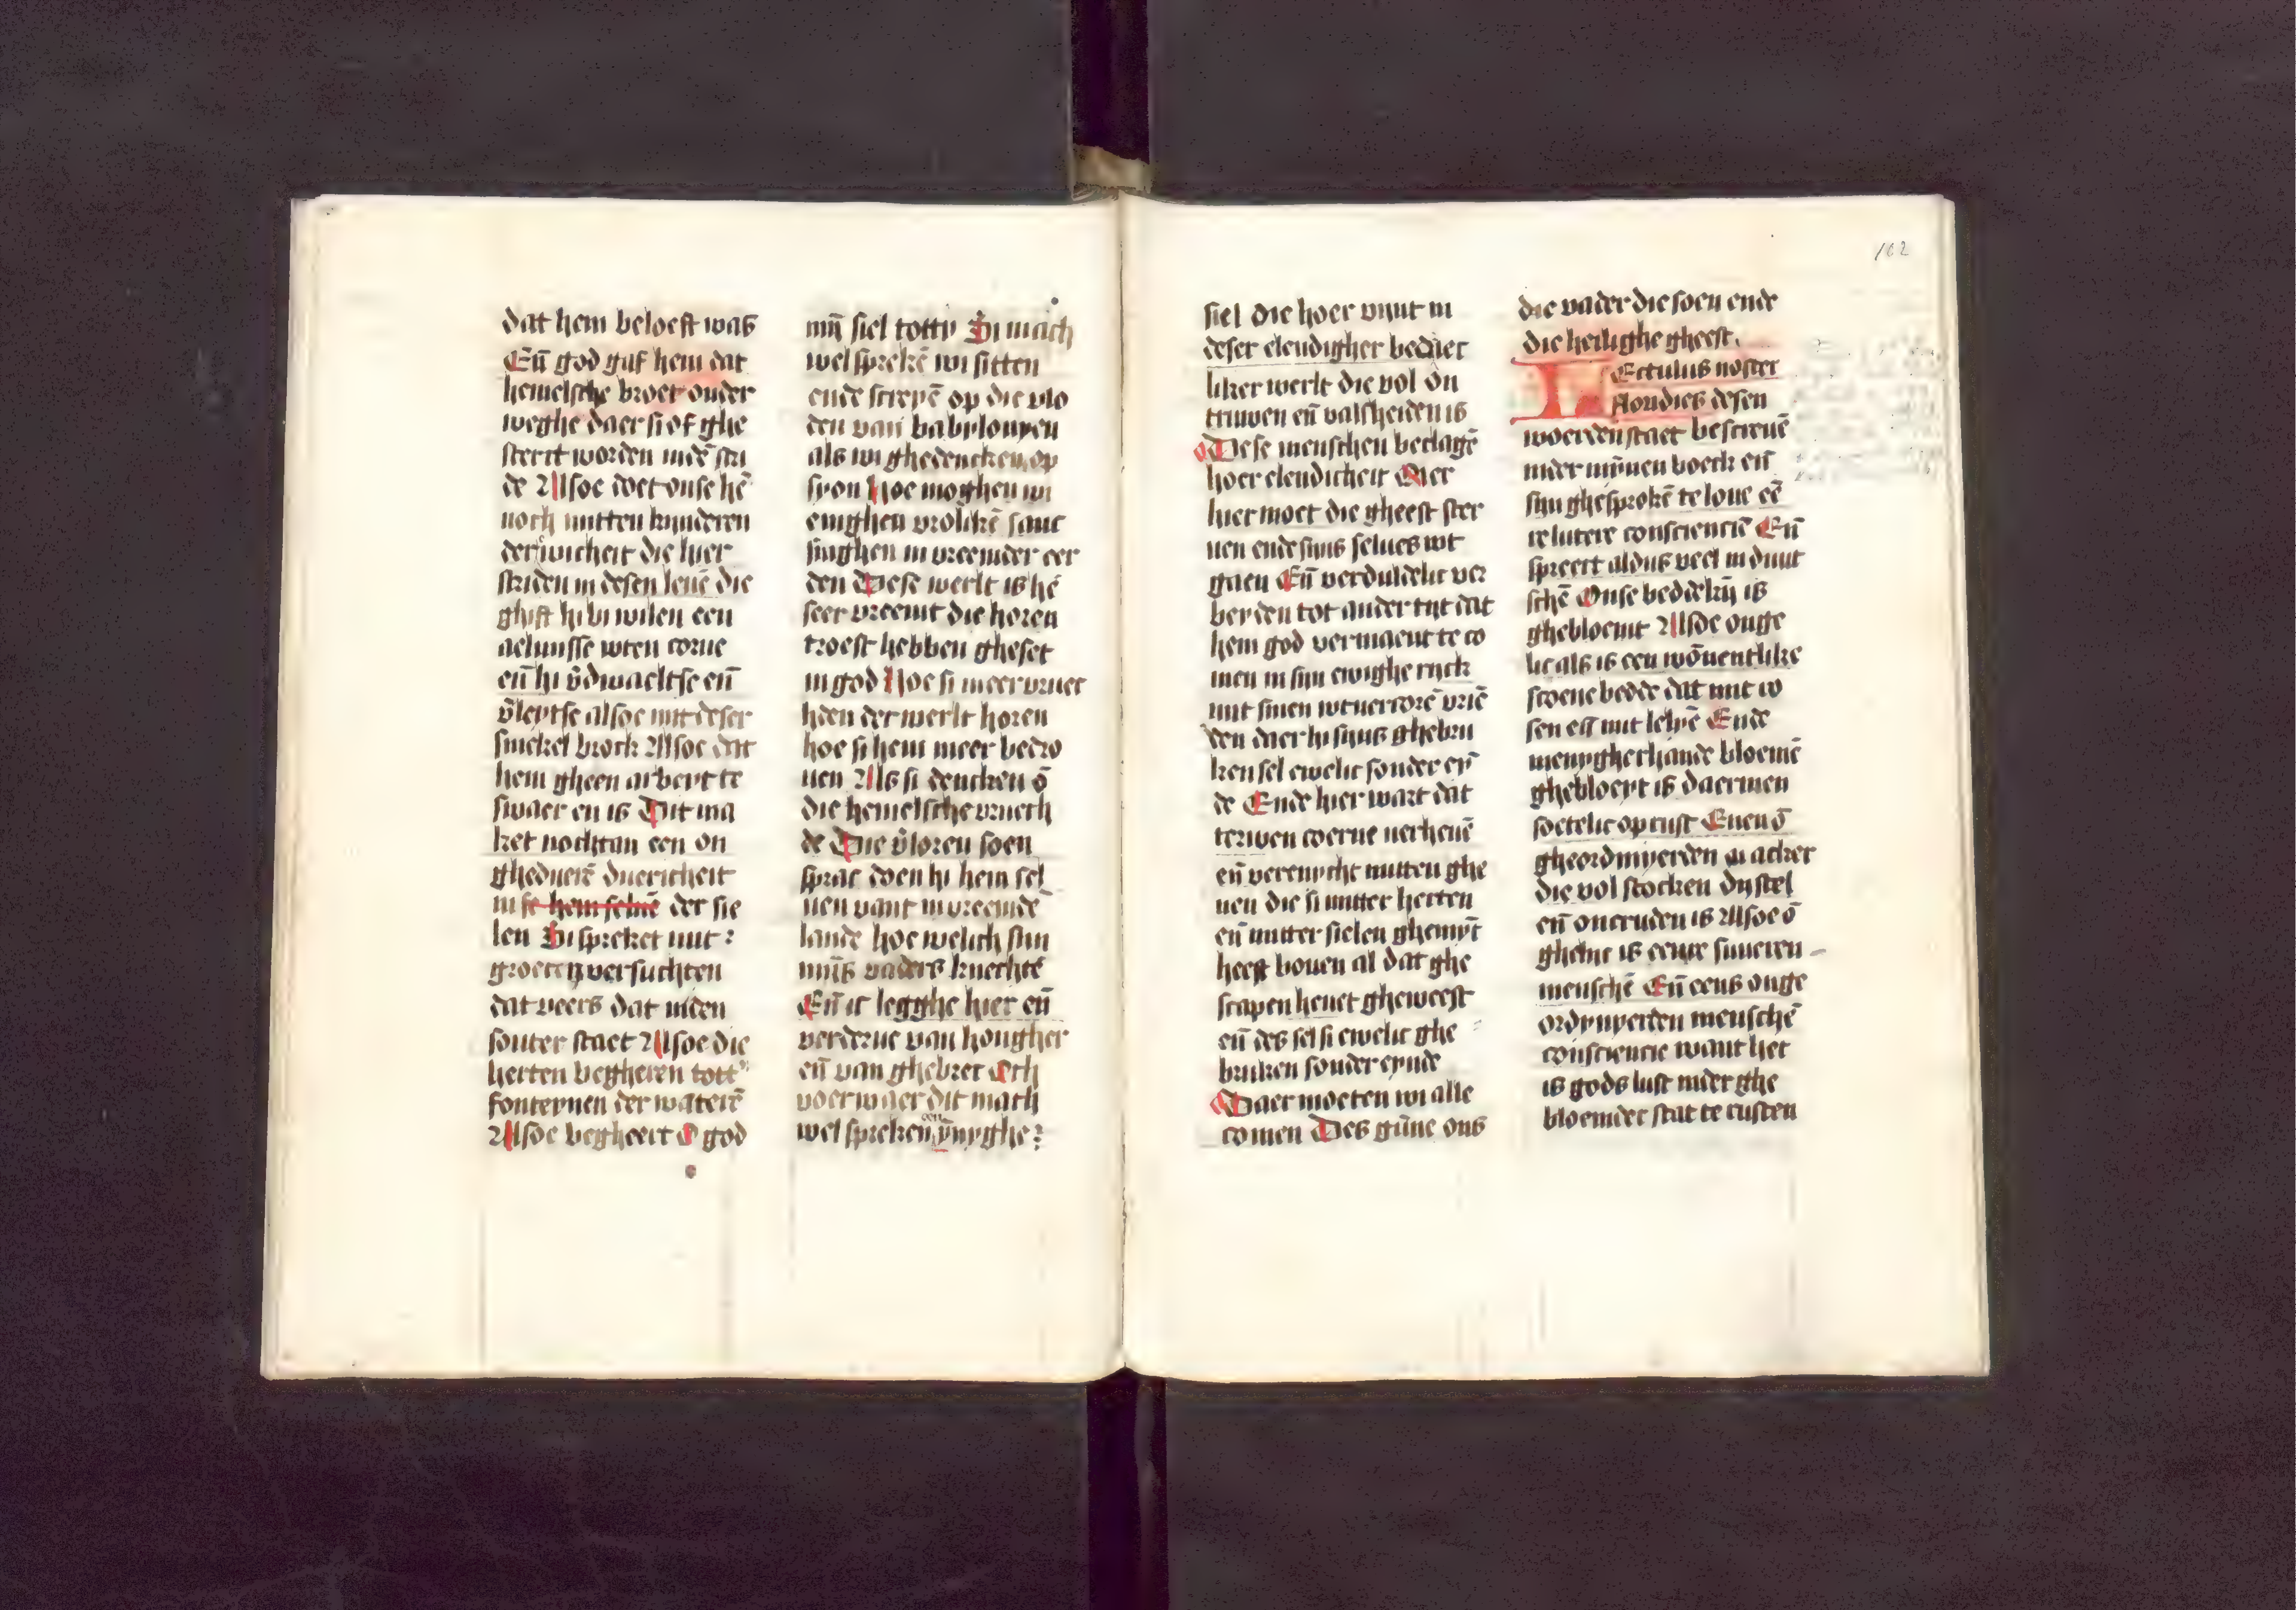 dat hem beloeft was
En̄ god gaf hem dat
hemelsche broet onder
weghe daer si of ghe
sterct worden indē stri
de Alsoe doet onse hē
noch mitten kinderen
der iõcheit die hier
striden in desen leuē die
ghift hi bi wilen een
aelmisse wten corue
en̄ hi v̄dwaeltse en̄
v̄leytse alsoe mit deser
smekel brock Alsoe dat
hem gheen arbeyt te
swaer en is Dit ma
ket nochtan een on
gheduerē duericheit
in se hem seluē der sie
len Si spreket mit
groeten versuchten
dat veers dat inden
souter staet Alsoe die
herten begheren tott
fonteynen der waterē
Alsoe begheert O god
mīj siel totty Si mach
wel sprekē wi sitten
ende screyē op die vlo
den van babylonyen
als wi ghedencken op
syon Hoe moghen wi
enighen vrolikē sanc
singhen in vreemder eer
den Dese werlt is hē
seer vreemt die horen
troest hebben gheset
in god Hoe si meer vruec
hden der werlt horen
hoe si hem meer bedro
uen Als si dencken ō
die hemelsche vruech
de Die v̄loren soen
sprac doen hi hem sel
uen vant in vreemdē
lande hoe welich sijn
mijs vaders knechtē
En̄ ic legghe hier en̄
verderue van hongher
en̄ van ghebrec Och
voerwaer dit mach
wel spreken een ynyghe
102
siel die hoer vint in
deser elendigher bedriec
liker werlt die vol on
truwen en̄ valscheiden is
Dese menschen beclagē
hoer elendicheit Mer
hier moet die gheest ster
uen ende sijns selues wt
gaen En̄ verduldelic ver
beyden tot ander tijt dat
hem god vermaent te co
men in sijn ewighe ryck
mit sinen wtuercorē vriē
den daer hi sijns ghebru
ken sel ewelic sonder ey
de Ende hier wart dat
terwen coerne verheuē
en̄ verenicht mitten ghe
uen die si mitter herten
en̄ mitter sielen ghemȳt
heeft bouen al dat ghe
scapen heuet gheweest
en̄ des sel si ewelic ghe
bruken sonder eynde
Daer moeten wi alle
comen Des gūne ons
die vader die soen ende
die heilighe gheest.
LEctulus noster
floridus desen
woerden staet bescreuē
inder mȳnen boeck en̄
sijn ghesprokē te loue eē
re lutere consciencie En̄
spreect aldus veel in duut
schē Onse beddekij is
ghebloemt Alsoe onge
lic als is een wōnentlike
scoene bedde dat mit ro
sen en̄ mit lelyē Ende
menygherhande bloemē
ghebloeyt is daer men
soetelic op rust Euen ō
gheordinyerden acker
die vol stocken dystel
en̄ oncruden is Alsoe ō
ghelijc is eenre suueren
menschē En̄ eens onge
ordynyerden menschē
consciencie want het
is gods lust inder ghe
bloemder stat te rusten